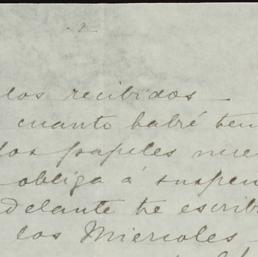 -2-
los recibidos -
cuanto habré ten
los papeles nue
obliga á suspen
delante te escrib
los Miercoles -